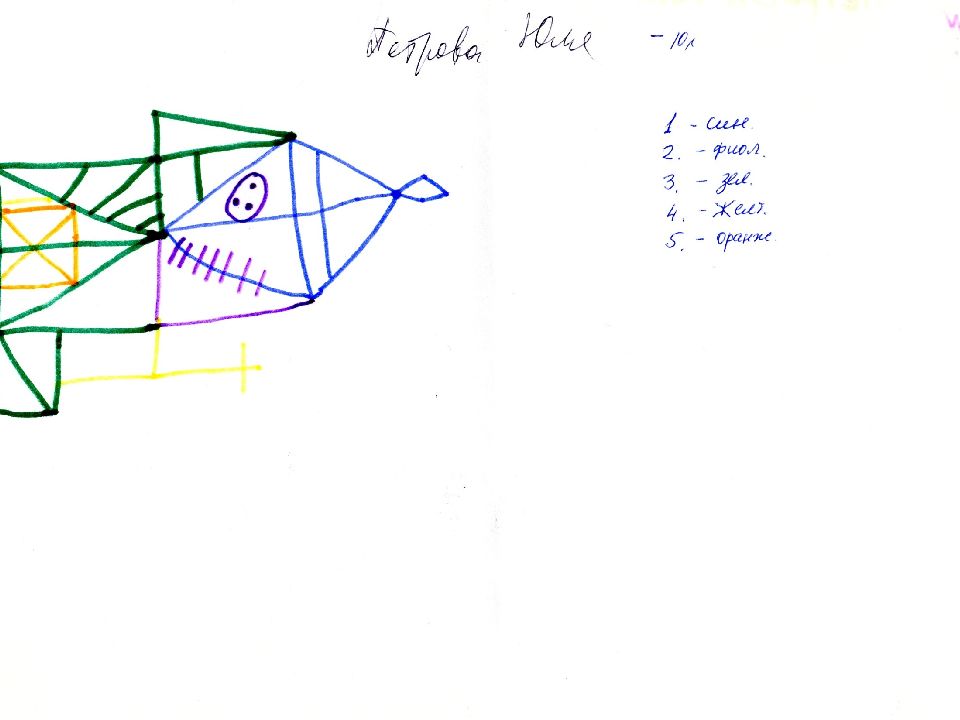 Петрова Юля - 10л
1 - син.
2. - фиол.
3. - зел.
4. - Желт.
5. - оранж.